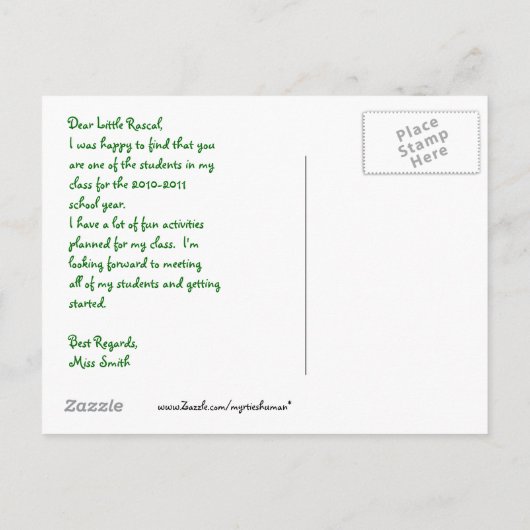 Dear Little Rascal,
I was happy to find that you
are one of the students in my
class for the 2010-2011
school year.
I have a lot of fun activities
planned for my class.  I'm
looking forward to meeting
all of my students and getting
started.

Best Regards,
Miss Smith
Place
Stamp
Here
Zazzle
www.Zazzle.com/myrtieshuman*